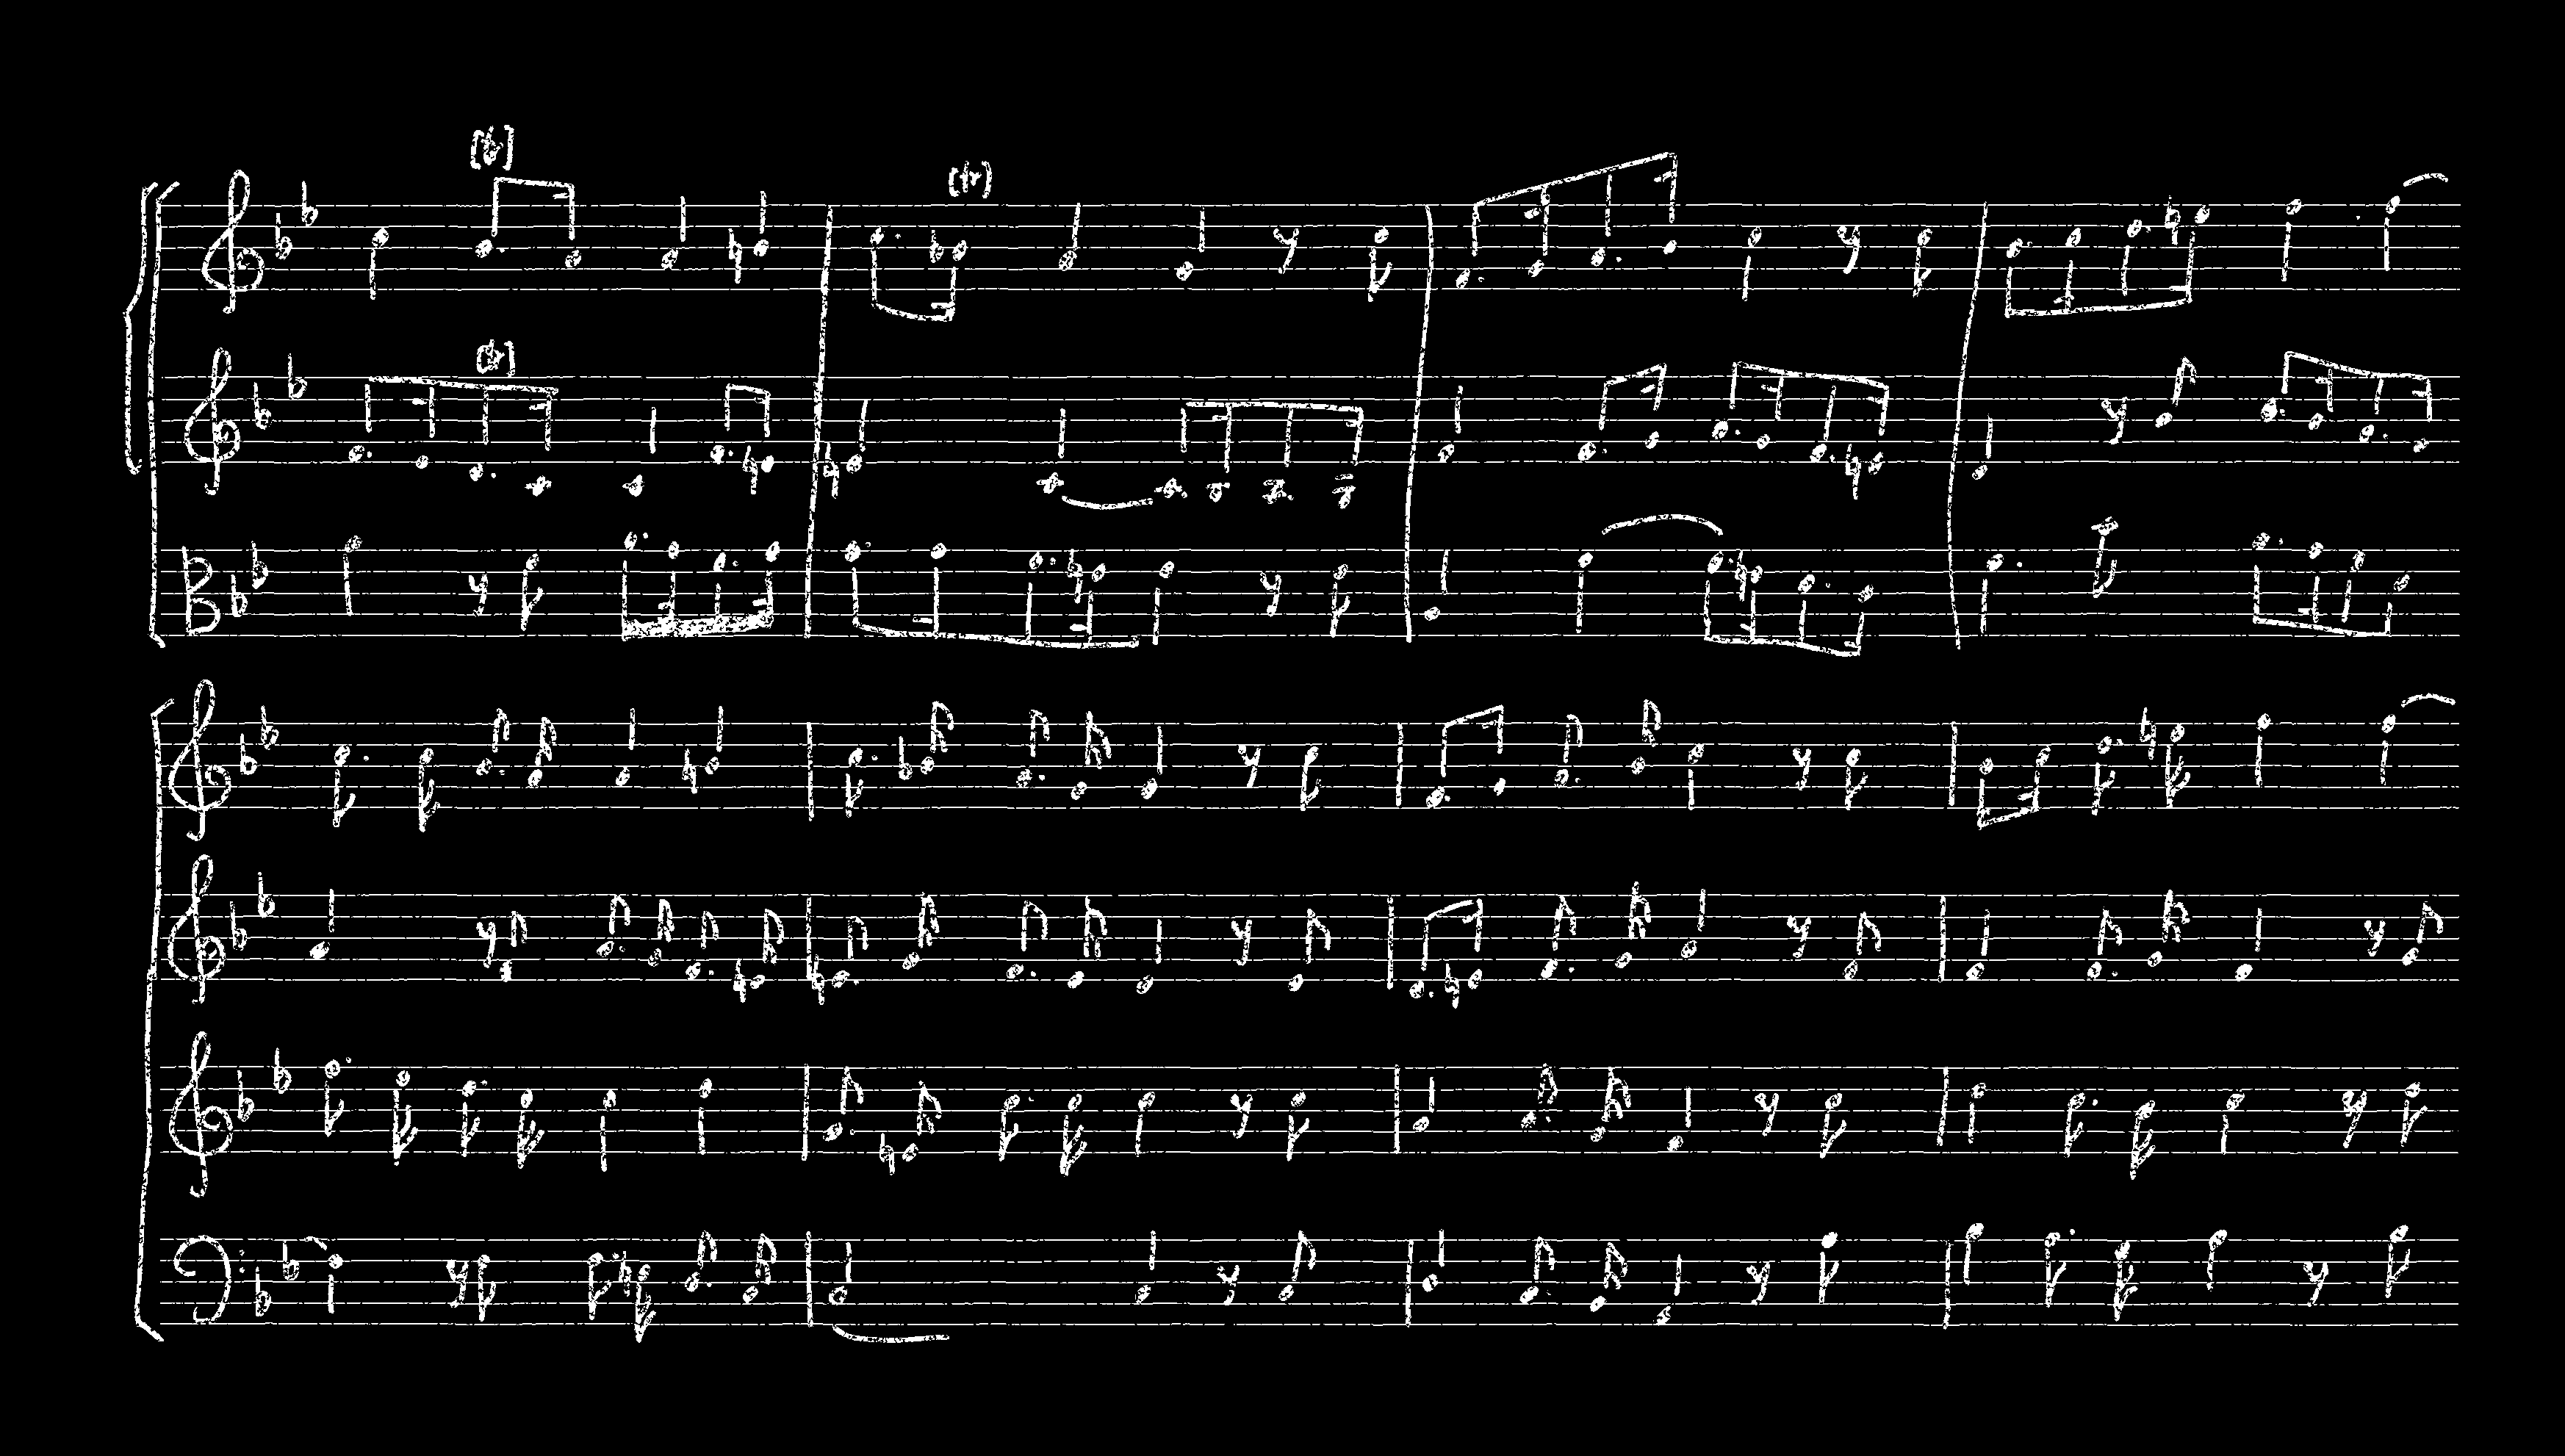 [tr]
(tr)
[tr]